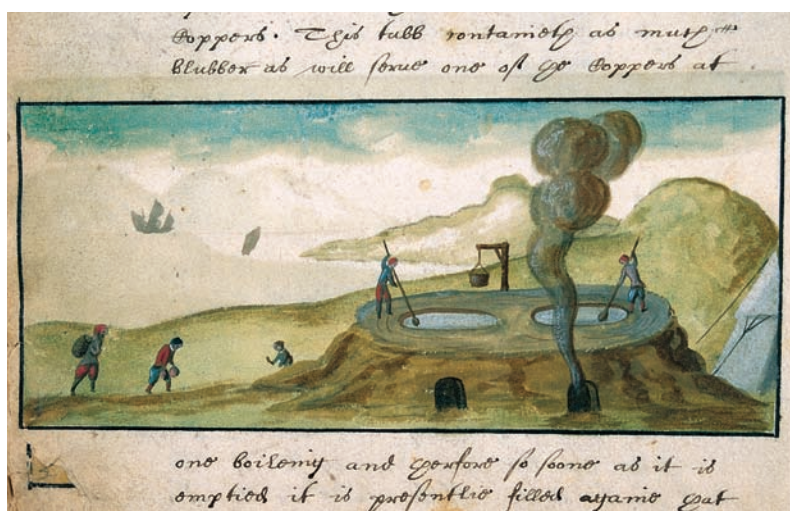 Coppers. This tubb contanieth as much
blubber as will serve one of the Coppers at
one boileing and therfore so soone as it is
emptied it is presentlie filled againe that